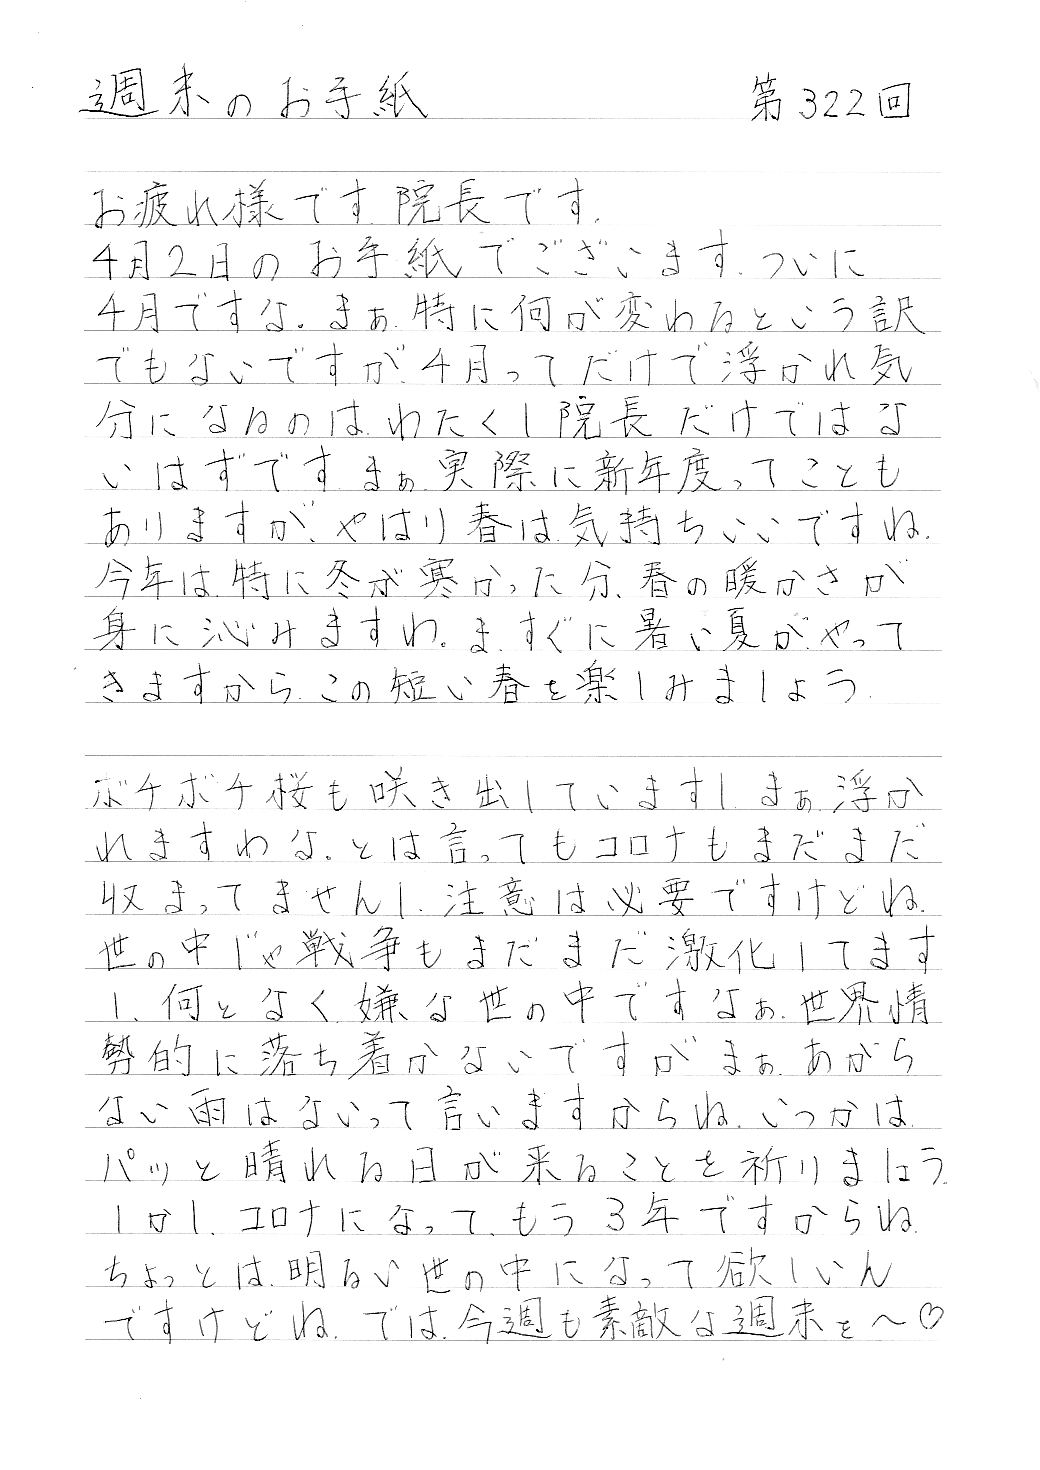 週末のお手紙 第322回
お疲れ様です.院長です.
4月2日のお手紙でございます.ついに
4月ですな.まぁ.特に何が変わるという訳
でもないですが、4月ってだけで浮かれ気
分になるのは.わたくし院長だけではな
いはずです.まぁ.実際に新年度ってことも
ありますが、やはり春は気持ちいいですね.
今年は.特に冬が寒かった分、春の暖かさが
身に沁みますわ.ま.すぐに暑い夏がやって
きますから.この短い春を楽しみましょう.
ボチボチ桜も咲き出していますし.まぁ.浮か
れますわな.とは言ってもコロナもまだまだ
収まってませんし.注意は必要ですけどね.
世の中じゃ戦争もまだまだ激化してます
し.何となく嫌な世の中ですなぁ.世界情
勢的に落ち着かないですが.まぁ.あがら
ない雨はないって言いますからね.いつかは
パッと晴れる日が来ることを祈りましょう.
しかし.コロナになって.もう3年ですからね.
ちょっとは.明るい世の中になって欲しいん
ですけどね.では.今週も素敵な週末を〜♡